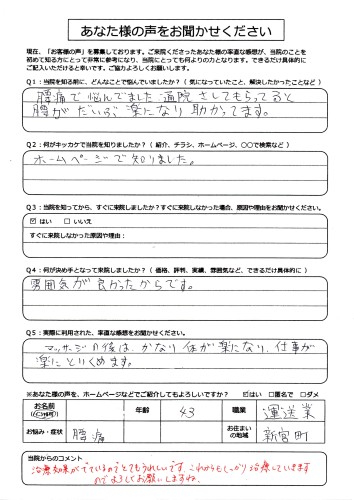 あなた様の声をお聞かせください
現在、「お客様の声」を募集しております。ご来院くださったあなた様の率直な感想が、当院のことを
初めて知る方にとって非常に参考になり、当院にとっても何よりの力となります。できるだけ具体的に
ご記入いただけると幸いです。ご協力よろしくお願いします。
Q1:当院を知る前に、どんなことで悩んでいましたか?(気になっていたこと、解決したかったことなど)
腰痛で悩んでました 通院させてもらってると
腰がだいぶ楽になり助かってます。
Q2:何がキッカケで当院を知りましたか?(紹介、チラシ、ホームページ、〇〇で検索など)
ホームページで知りました。
Q3:当院を知ってから、すぐに来院しましたか?すぐに来院しなかった場合、原因や理由をお聞かせください。
☑ はい □ いいえ
すぐに来院しなかった原因や理由:
Q4:何が決め手となって来院しましたか?(価格、評判、実績、雰囲気など、できるだけ具体的に)
雰囲気が良かったからです。
Q5:実際に利用された、率直な感想をお聞かせください。
マッサージの後は、かなり体が楽になり、仕事が
楽にとりくめます。
※あなた様の声を、ホームページなどでご紹介してもよろしいですか? ☑はい □匿名で □ダメ
お名前 年齢 43 職業 運送業
お悩み・症状 腰痛 お住まいの地域 新宮町
当院からのコメント
治療効果がでているのでとてもうれしいです。これからもしっかり治療していきます
のでよろしくお願いしますね。